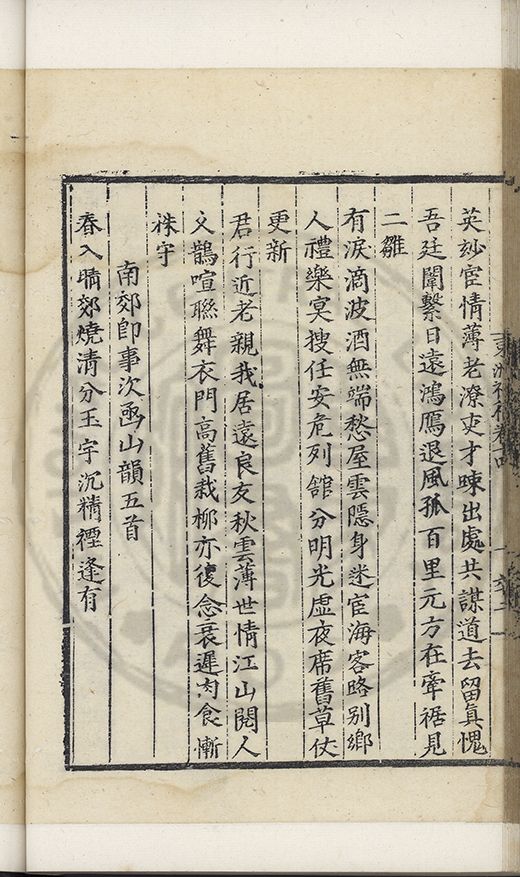 英玅宦情薄老潦吏才踈出處共謀道去留眞愧
吾廷闈繫日遠鴻鴈退風孤百里元方在牽裾見
二雛
有淚滴波酒無端愁屋雲隱身迷宦海客路别鄉
人禮樂冥搜任安危列舘分明光虛夜席舊草仗
更新
君行近老親我居遠良友秋雲薄世情江山閱人
文鵲喧聯舞衣門高舊栽柳亦復念衰遲肉食慚
株守
南郊卽事次函山韻五首
春入晴郊燒清分玉宇沉精禋逢有